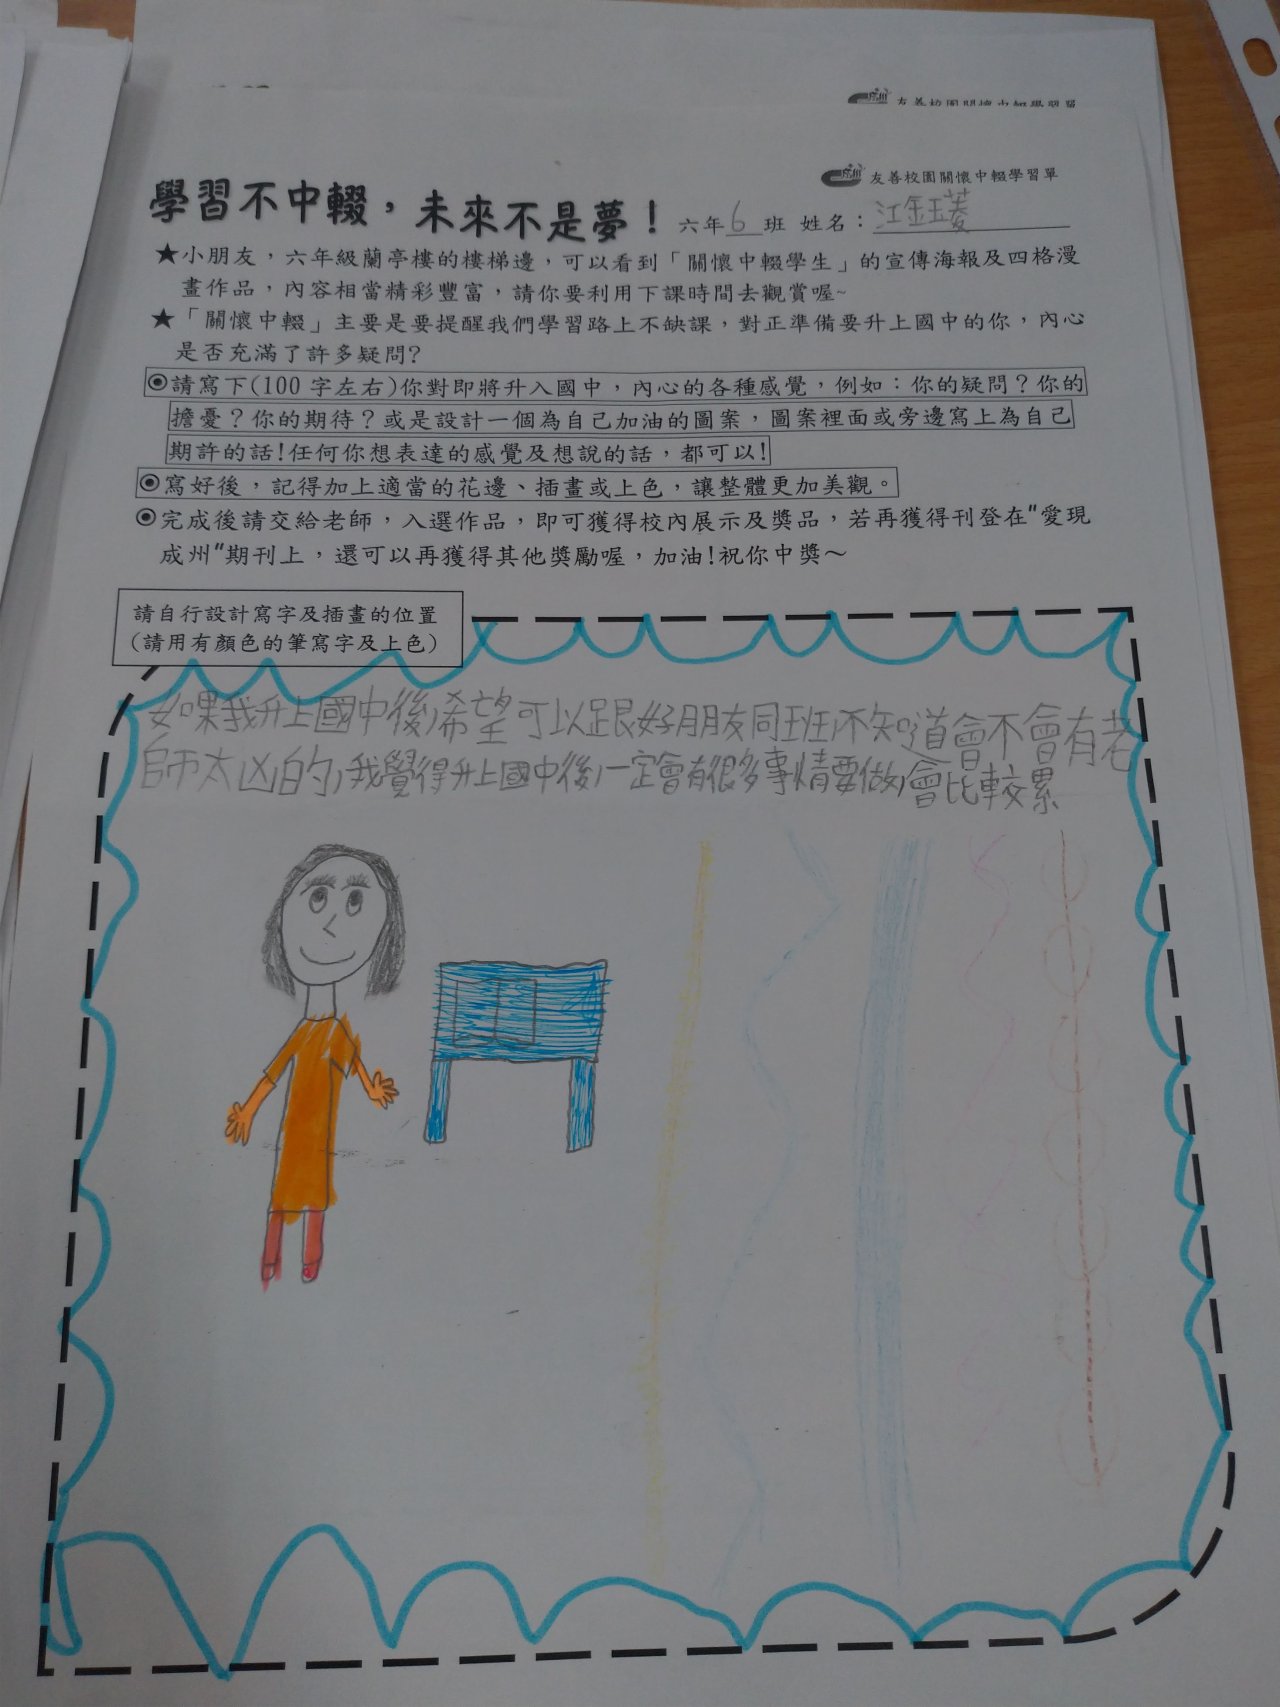 友善校園關懷中輟學習單
友善校園關懷中輟學習單
學習不中輟，未來不是夢！ 六年 6 班 姓名：江鈺菱
★小朋友，六年級蘭亭樓的樓梯邊，可以看到「關懷中輟學生」的宣傳海報及四格漫
畫作品，內容相當精彩豐富，請你要利用下課時間去觀賞喔~
★「關懷中輟」主要是要提醒我們學習路上不缺課，對正準備要升上國中的你，內心
是否充滿了許多疑問?
◉請寫下(100 字左右)你對即將升入國中，內心的各種感覺，例如：你的疑問？你的
擔憂？你的期待？或是設計一個為自己加油的圖案，圖案裡面或旁邊寫上為自己
期許的話!任何你想表達的感覺及想說的話，都可以!
◉寫好後，記得加上適當的花邊、插畫或上色，讓整體更加美觀。
◉完成後請交給老師，入選作品，即可獲得校內展示及獎品，若再獲得刊登在"愛現
成州"期刊上，還可以再獲得其他獎勵喔，加油!祝你中獎～
請自行設計寫字及插畫的位置
(請用有顏色的筆寫字及上色)
如果我升上國中後,希望可以跟好朋友同班,不知道會不會有老
師太凶的,我覺得升上國中後,一定會有很多事情要做,會比較累